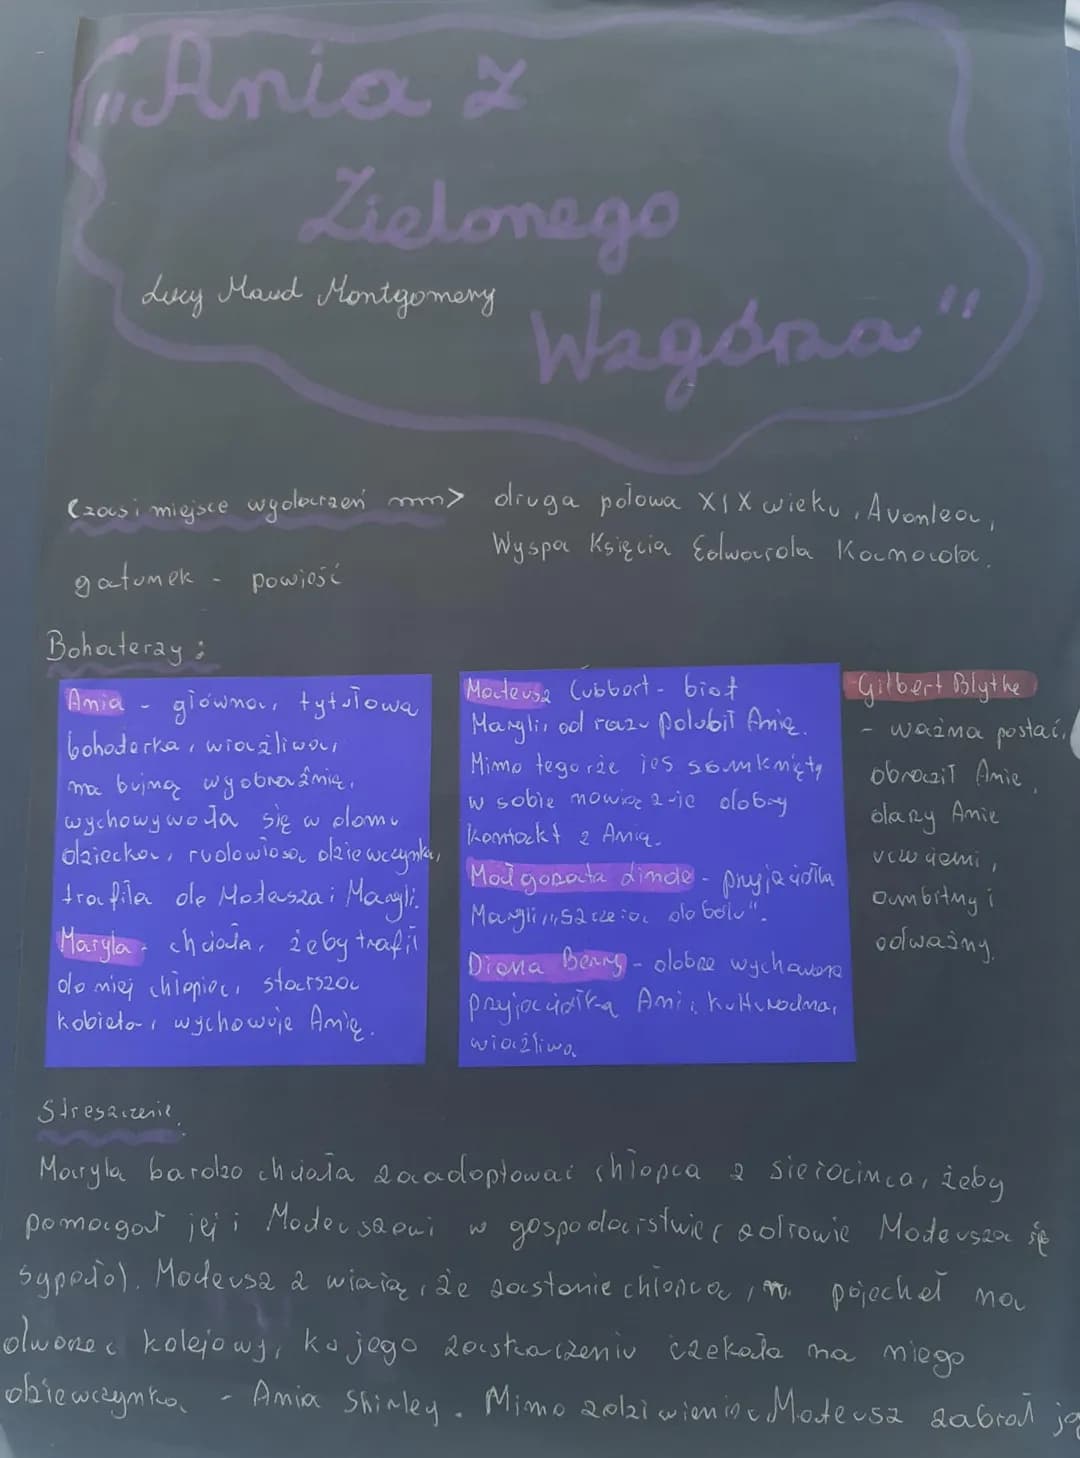 "Ania z
Zielonego
Wzgórza"
Lucy Maud Montgomery
Czas i miejsce wydarzeń > druga połowa XIX wieku, Avonlea,
Wyspa Księcia Edwarda Kanada.
gatunek - powieść
Bohaterzy:
Ania - główna, tytułowa
bohaterka, wrażliwa,
ma bujną wyobraźnię,
wychowywała się w domu
dziecka, rudowłosa dziewczynka,
trafiła do Mateusza i Maryli.
Maryla - chciała, żeby trafił
do niej chłopiec, starsza
kobieta, wychowuje Anię.
Mateusz Cubbert - brat
Maryli, od razu polubił Anię.
Mimo tego że jes zamknięty
w sobie nawiązuje dobry
kontakt z Anią.
Małgorzata Linde - przyjaciółka
Maryli, "szczera do bólu".
Diana Berry - dobrze wychowana
przyjaciółka Ani, kulturalna,
wrażliwa
Gilbert Blythe
- ważna postać,
obraził Anię,
darzy Anie
uczuciem,
ambitny i
odważny.
Streszczenie
Maryla bardzo chciała zaadoptować chłopca z sierocinca, żeby
pomagał jej i Mateuszowi w gospodarstwie (zdrowie Mateusza się
sypało). Mateusz z wiarą, że zastanie chłopca, pojechał na
dworzec kolejowy, ku jego zaskoczeniu czekała na niego
dziewczynka - Ania Shirley. Mimo zdziwienia Mateusz zabrał ją